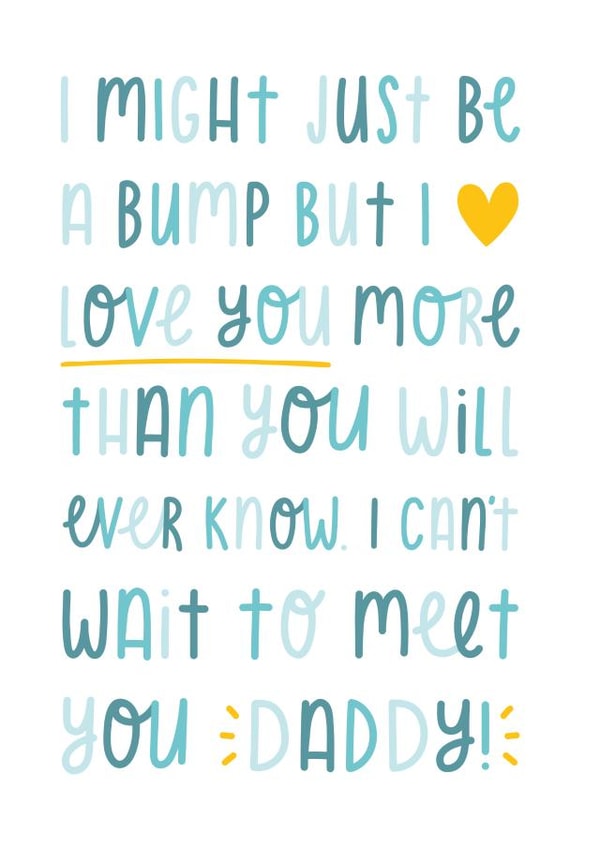 I MIGHT JUST BE
A BUMP BUT I
LOVE YOU MORE
THAN YOU WILL
EVER KNOW. I CAN'T
WAIT TO MEET
YOU DADDY!